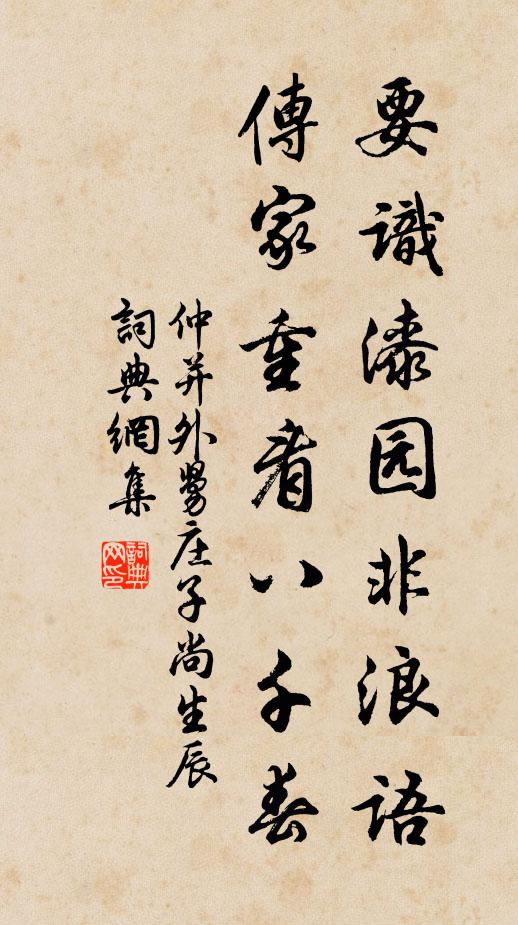 要識漆园非浪語
傳家重看八千春
仲并外舅庄子尚生辰
詞典網集
詞典网印